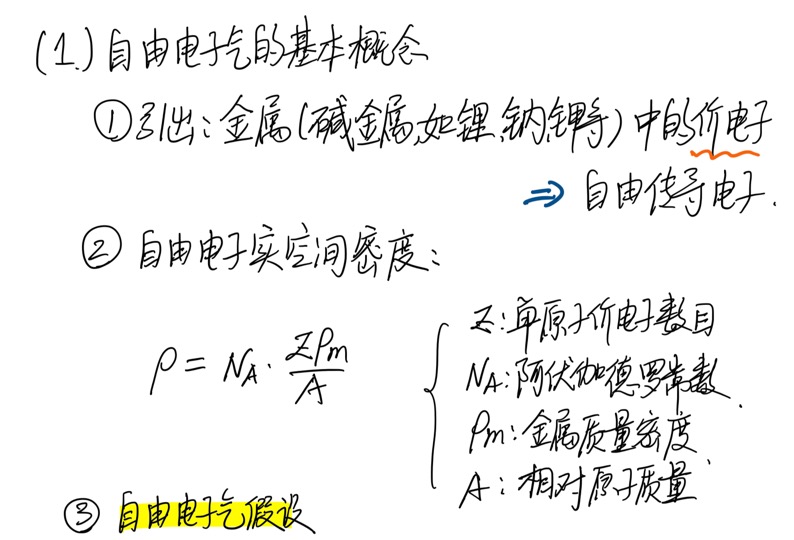 (1.) 自由电子气的基本概念
① 引出: 金属(碱金属,如锂,钠,钾等) 中的价电子
⇒ 自由传导电子.
② 自由电子实空间密度:
ρ = N_A · Zρm/A
Z: 单原子价电子数目
N_A: 阿伏伽德罗常数.
ρm: 金属质量密度
A: 相对原子质量
③ 自由电子气假设